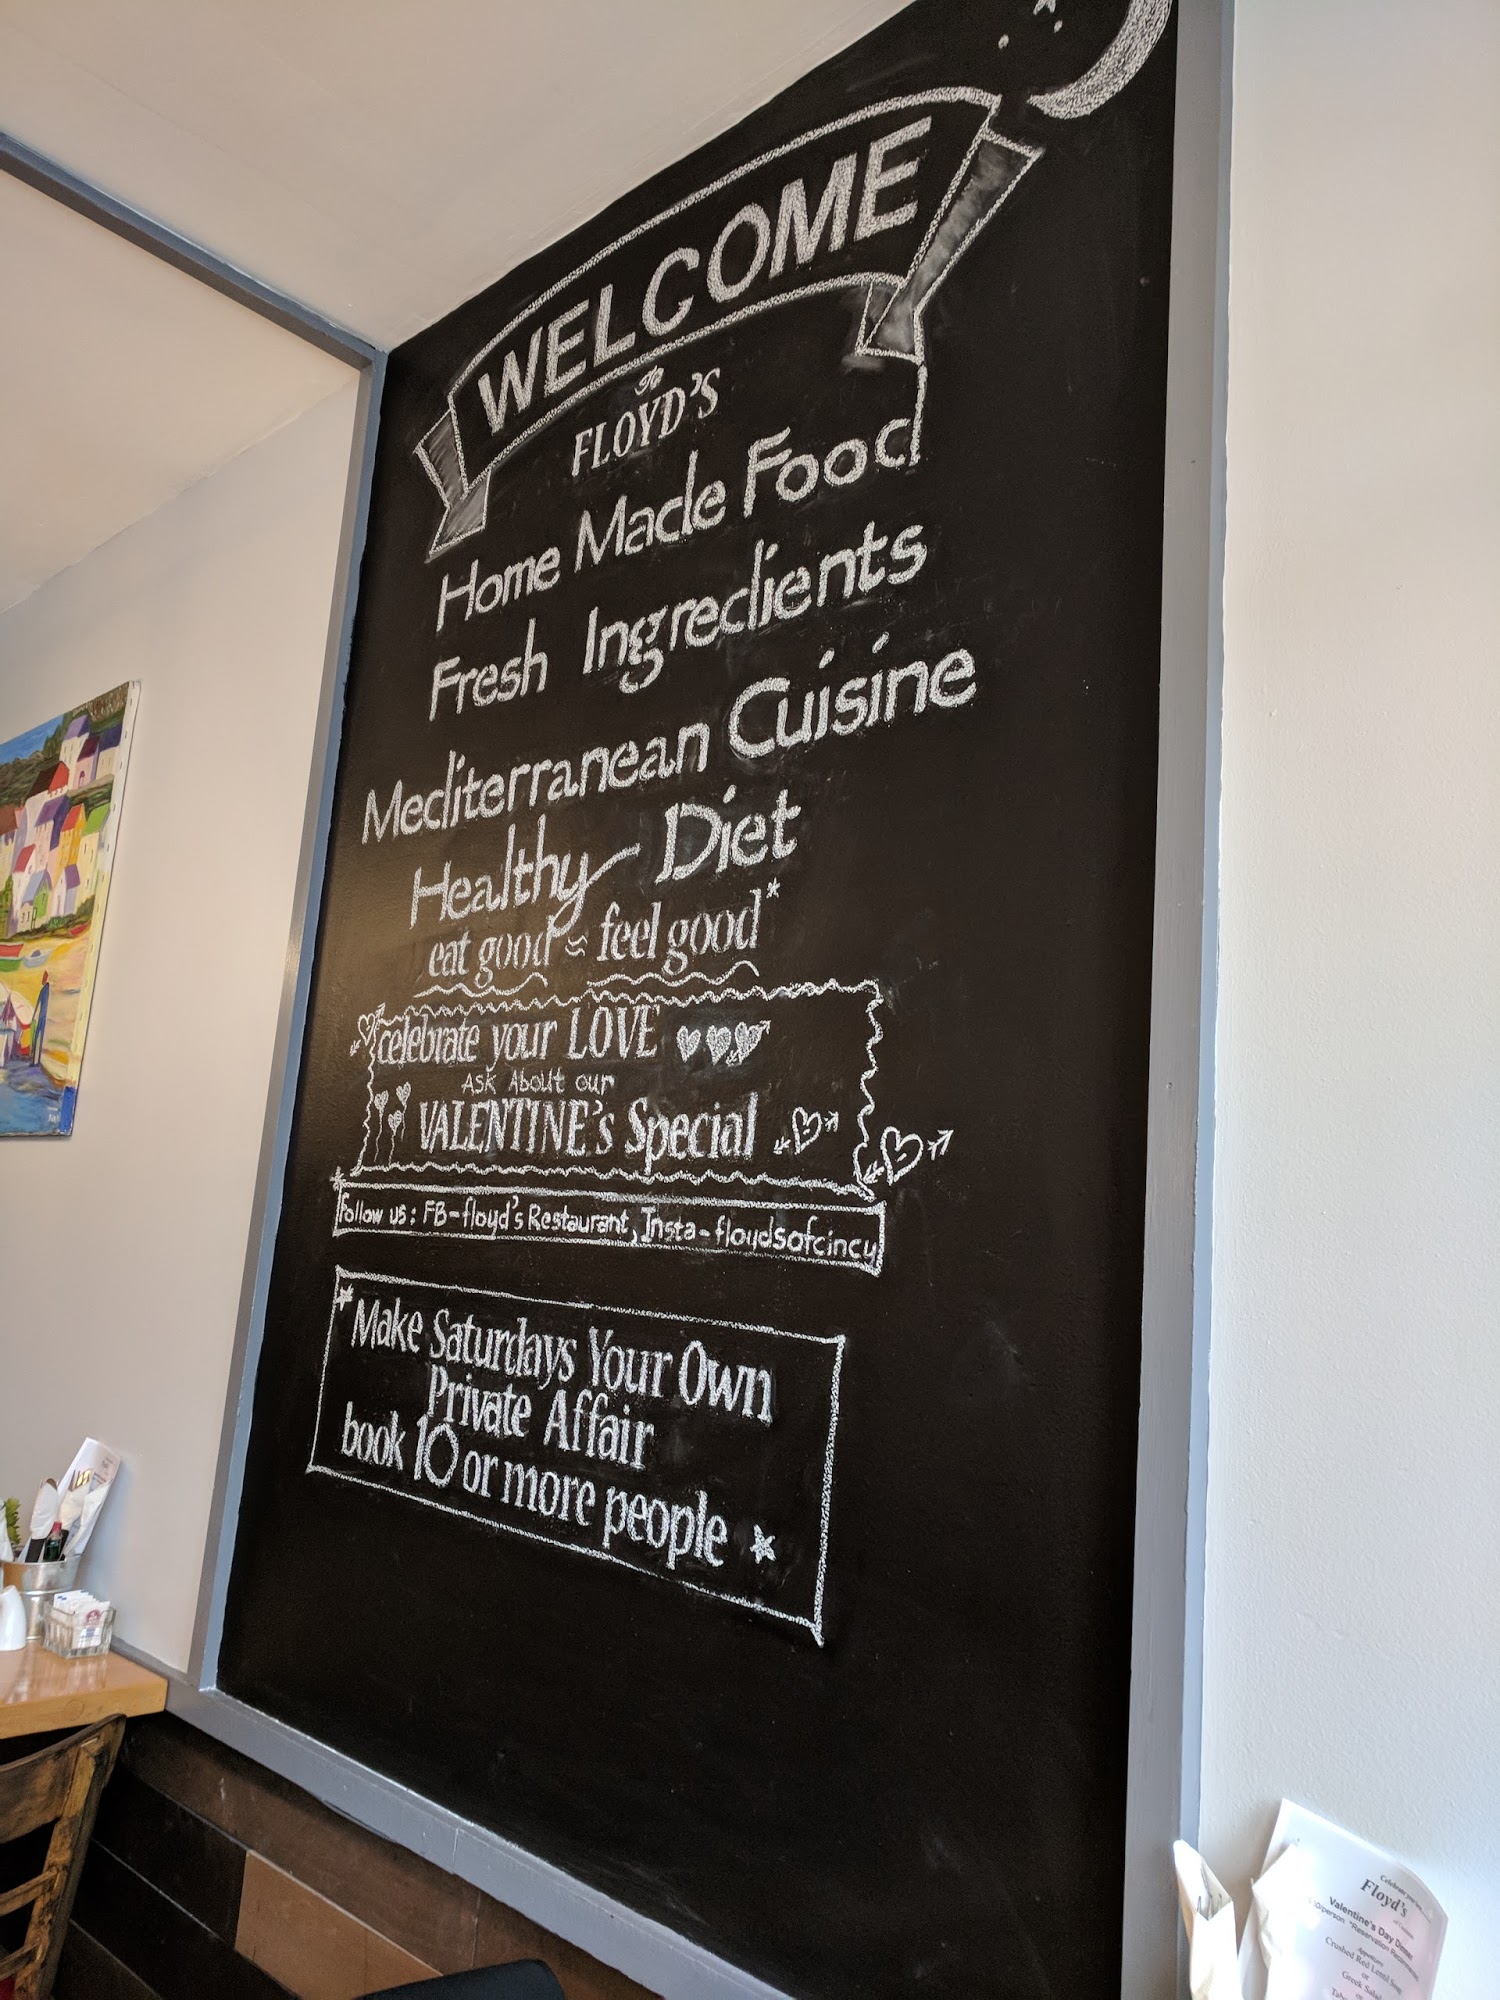 WELCOME
To
FLOYD'S
Home Made Food
Fresh Ingredients
Mediterranean Cuisine
Healthy Diet
eat good ≈ feel good*
celebrate your LOVE
Ask About our
VALENTINE's Special
Follow us: FB-floyd's Restaurant, Insta-floydsofcincy
*Make Saturdays Your Own
Private Affair
book 10 or more people *
Celebrate your
Floyd's
Valentine's Day Dinner
/person *Reservation
Appetizers
Crushed Red Lentil Soup
or
Greek Salad
or